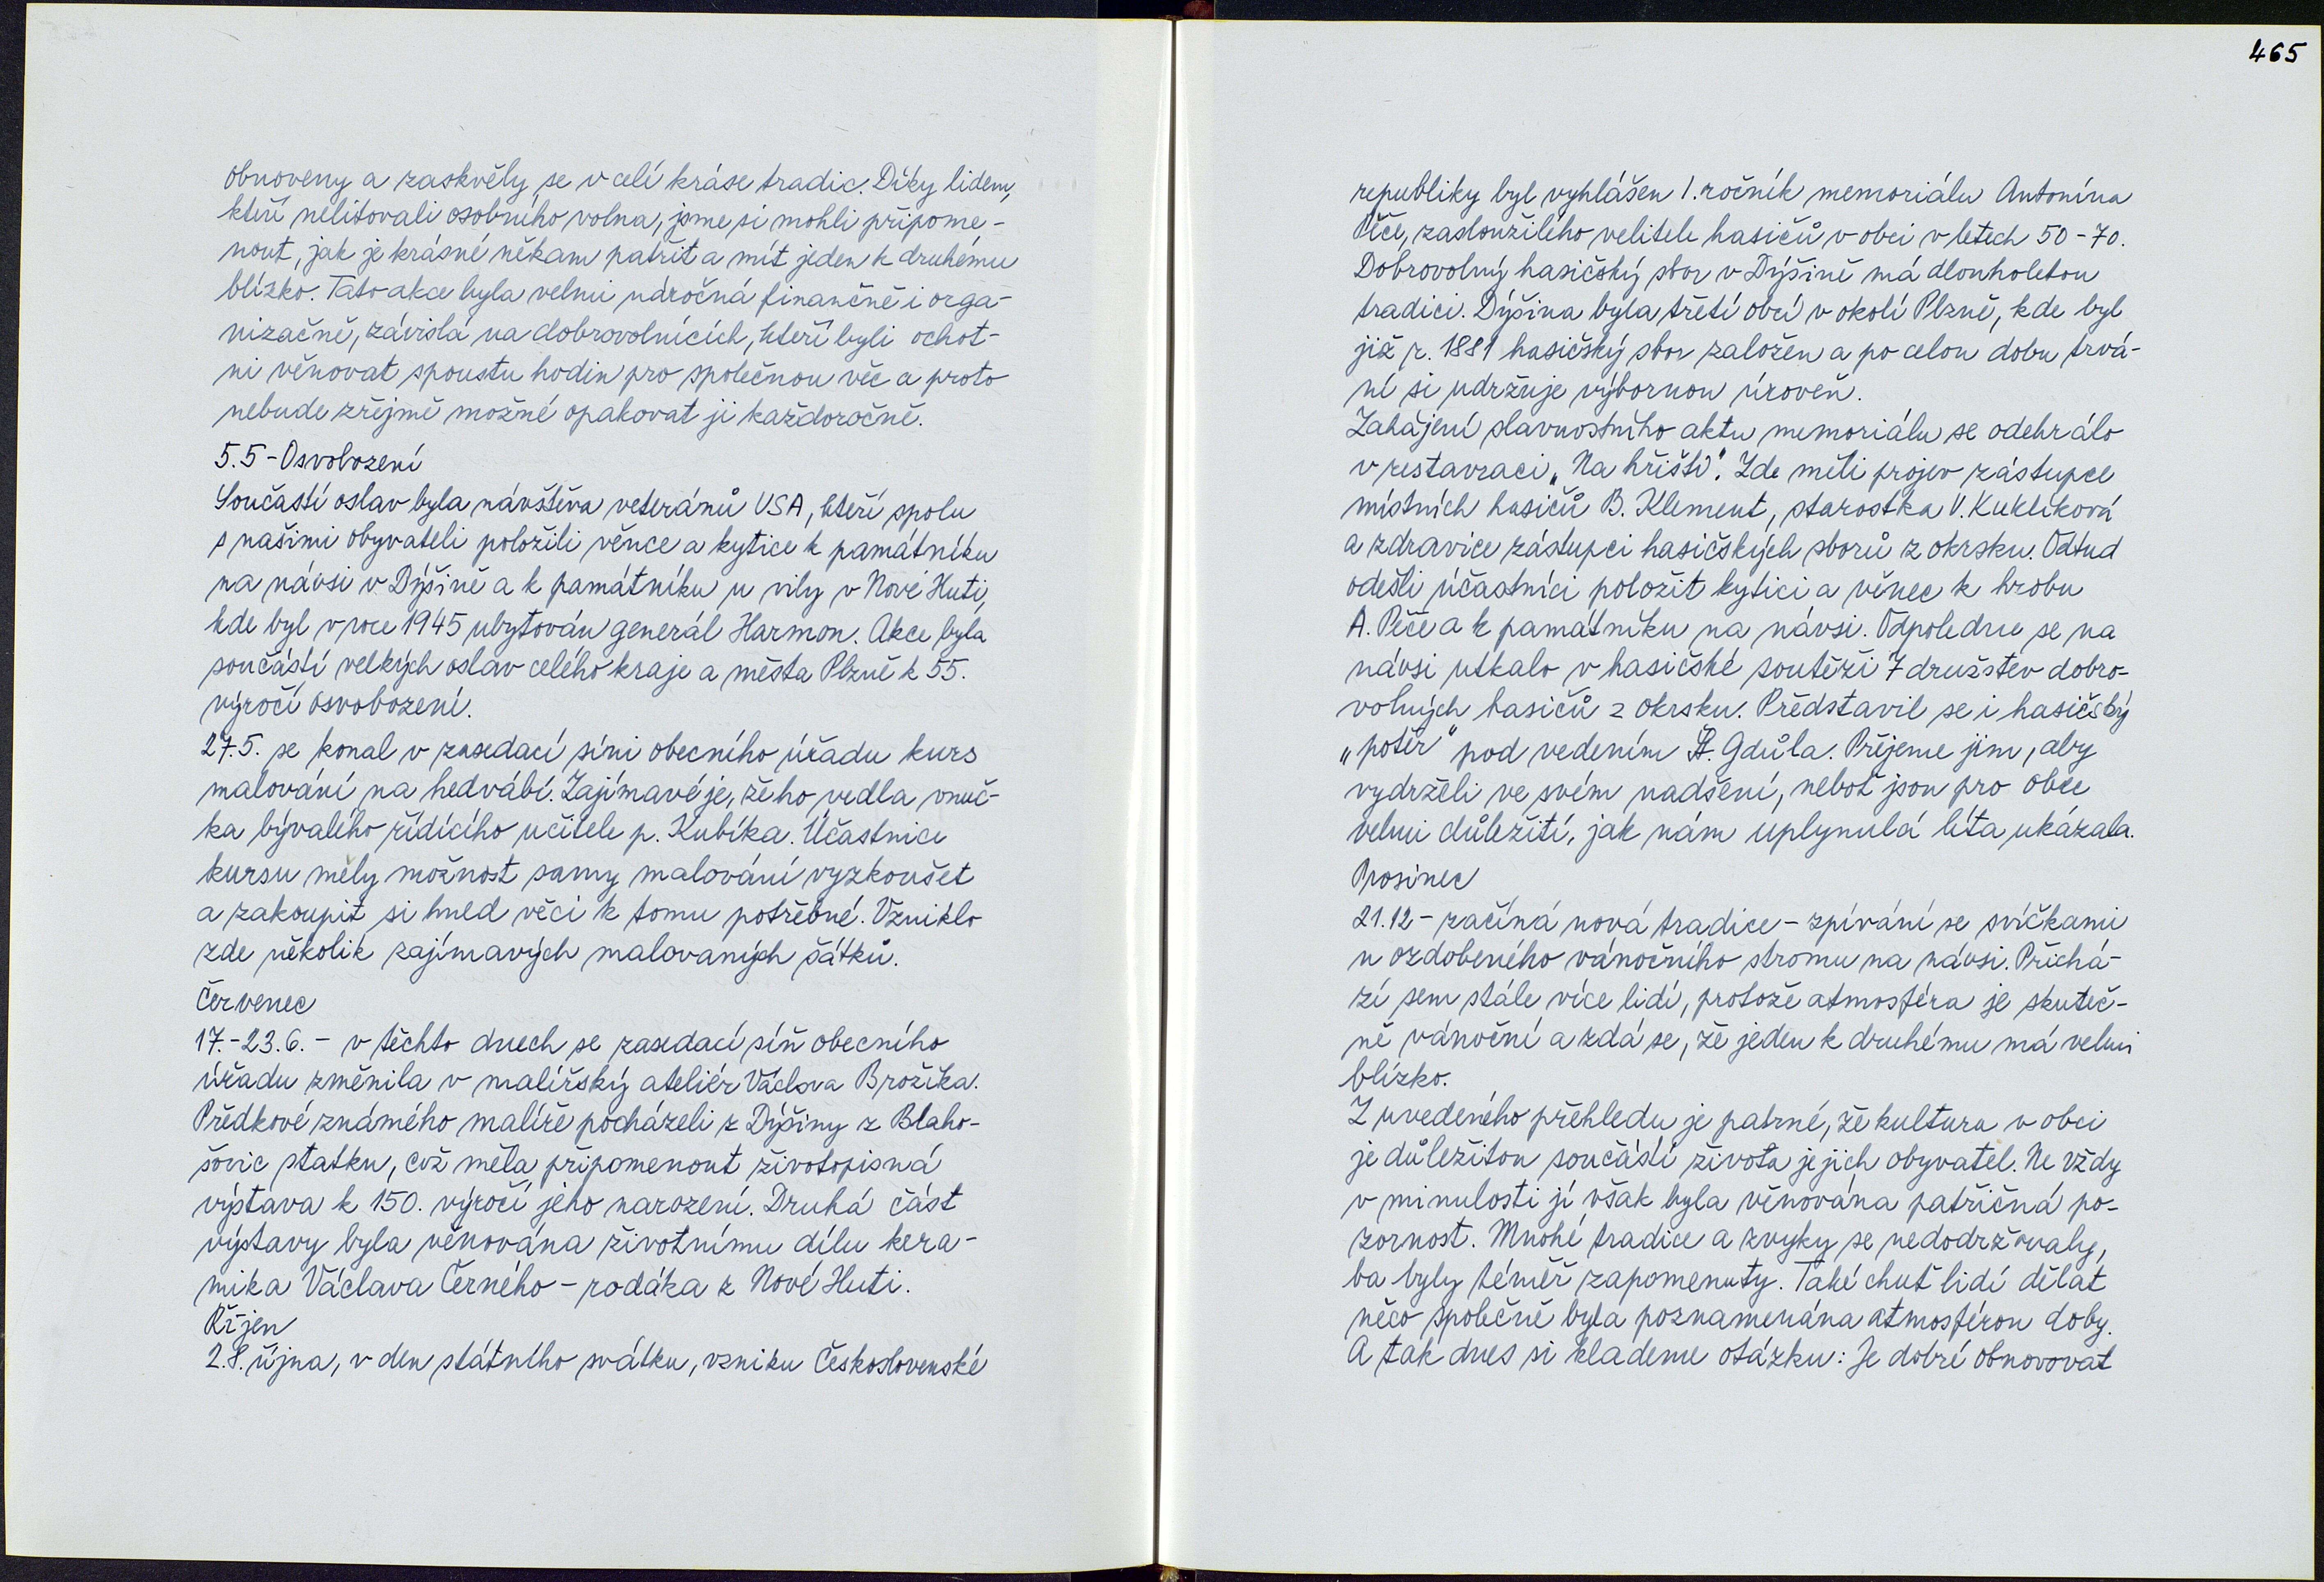 obnoveny a zaskvěly se v celé kráse tradic. Díky lidem,
kteří nelitovali osobního volna, jsme si mohli připome-
nout, jak je krásné někam patřit a mít jeden k druhému
blízko. Tato akce byla velmi náročná finančně i orga-
nizačně, závislá na dobrovolnících, kteří byli ochot-
ni věnovat spoustu hodin pro společnou věc a proto
nebude zřejmě možné opakovat ji každoročně.
5.5 - Osvobození
Součástí oslav byla návštěva veteránů USA, kteří spolu
s našimi obyvateli položili věnce a kytice k památníku
na návsi v Dýšině a k památníku u vily v Nové Huti,
kde byl v roce 1945 ubytován generál Harmon. Akce byla
součástí velkých oslav celého kraje a města Plzně k 55.
výročí osvobození.
27.5. se konal v zasedací síni obecního úřadu kurs
malování na hedvábí. Zajímavé je, že ho vedla vnuč-
ka bývalého řídícího učitele p. Kubíka. Účastnice
kursu měly možnost samy malování vyzkoušet
a zakoupit si hned věci k tomu potřebné. Vzniklo
zde několik zajímavých malovaných šátků.
Červenec
17.-23.6. - v těchto dnech se zasedací síň obecního
úřadu změnila v malířský ateliér Václava Brožíka.
Předkové známého malíře pocházeli z Dýšiny z Blaho-
šovic statku, což měla připomenout životopisná
výstava k 150. výročí jeho narození. Druhá část
výstavy byla věnována životnímu dílu kera-
mika Václava Černého - rodáka z Nové Huti.
Říjen
28. října, v den státního svátku, vzniku Československé
465
republiky byl vyhlášen 1. ročník memoriálu Antonína
Píče, zasloužilého velitele hasičů v obci v letech 50-70.
Dobrovolný hasičský sbor v Dýšině má dlouholetou
tradici. Dýšina byla třetí obcí v okolí Plzně, kde byl
již r. 1881 hasičský sbor založen a po celou dobu trvá-
ní si udržuje výbornou úroveň.
Zahájení slavnostního aktu memoriálu se odehrálo
v restavraci „Na hřišti". Zde měli projev zástupce
místních hasičů B. Klement, starostka V. Kuklíková
a zdravice zástupci hasičských sborů z okrsku. Odtud
odešli účastníci položit kytici a věnec k hrobu
A. Píče a k památníku na návsi. Odpoledne se na
návsi utkalo v hasičské soutěži 7 družstev dobro-
volných hasičů z okrsku. Představil se i hasičský
„potěr" pod vedením St. Gdůla. Přejeme jim, aby
vydrželi ve svém nadšení, neboť jsou pro obec
velmi důležití, jak nám uplynulá léta ukázala.
Prosinec
21.12 - začíná nová tradice - zpívání se svíčkami
u ozdobeného vánočního stromu na návsi. Přichá-
zí sem stále více lidí, protože atmosféra je skuteč-
ně vánoční a zdá se, že jeden k druhému má velmi
blízko.
Z uvedeného přehledu je patrné, že kultura v obci
je důležitou součástí života jejich obyvatel. Ne vždy
v minulosti jí však byla věnována patřičná po-
zornost. Mnohé tradice a zvyky se nedodržovaly,
ba byly téměř zapomenuty. Také chuť lidí dělat
něco společně byla poznamenána atmosférou doby.
A tak dnes si klademe otázku: Je dobré obnovovat